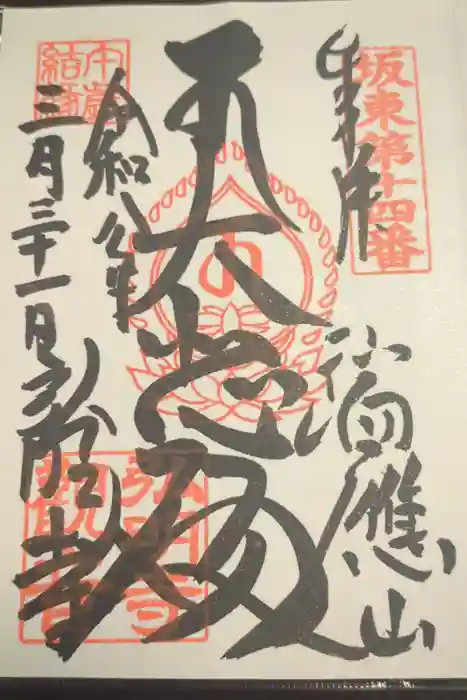 坂東第十四番
奉拝
瑞應山
大悲殿
令和八年
三月三十一日
弘明寺
午歳
結縁
弘明寺